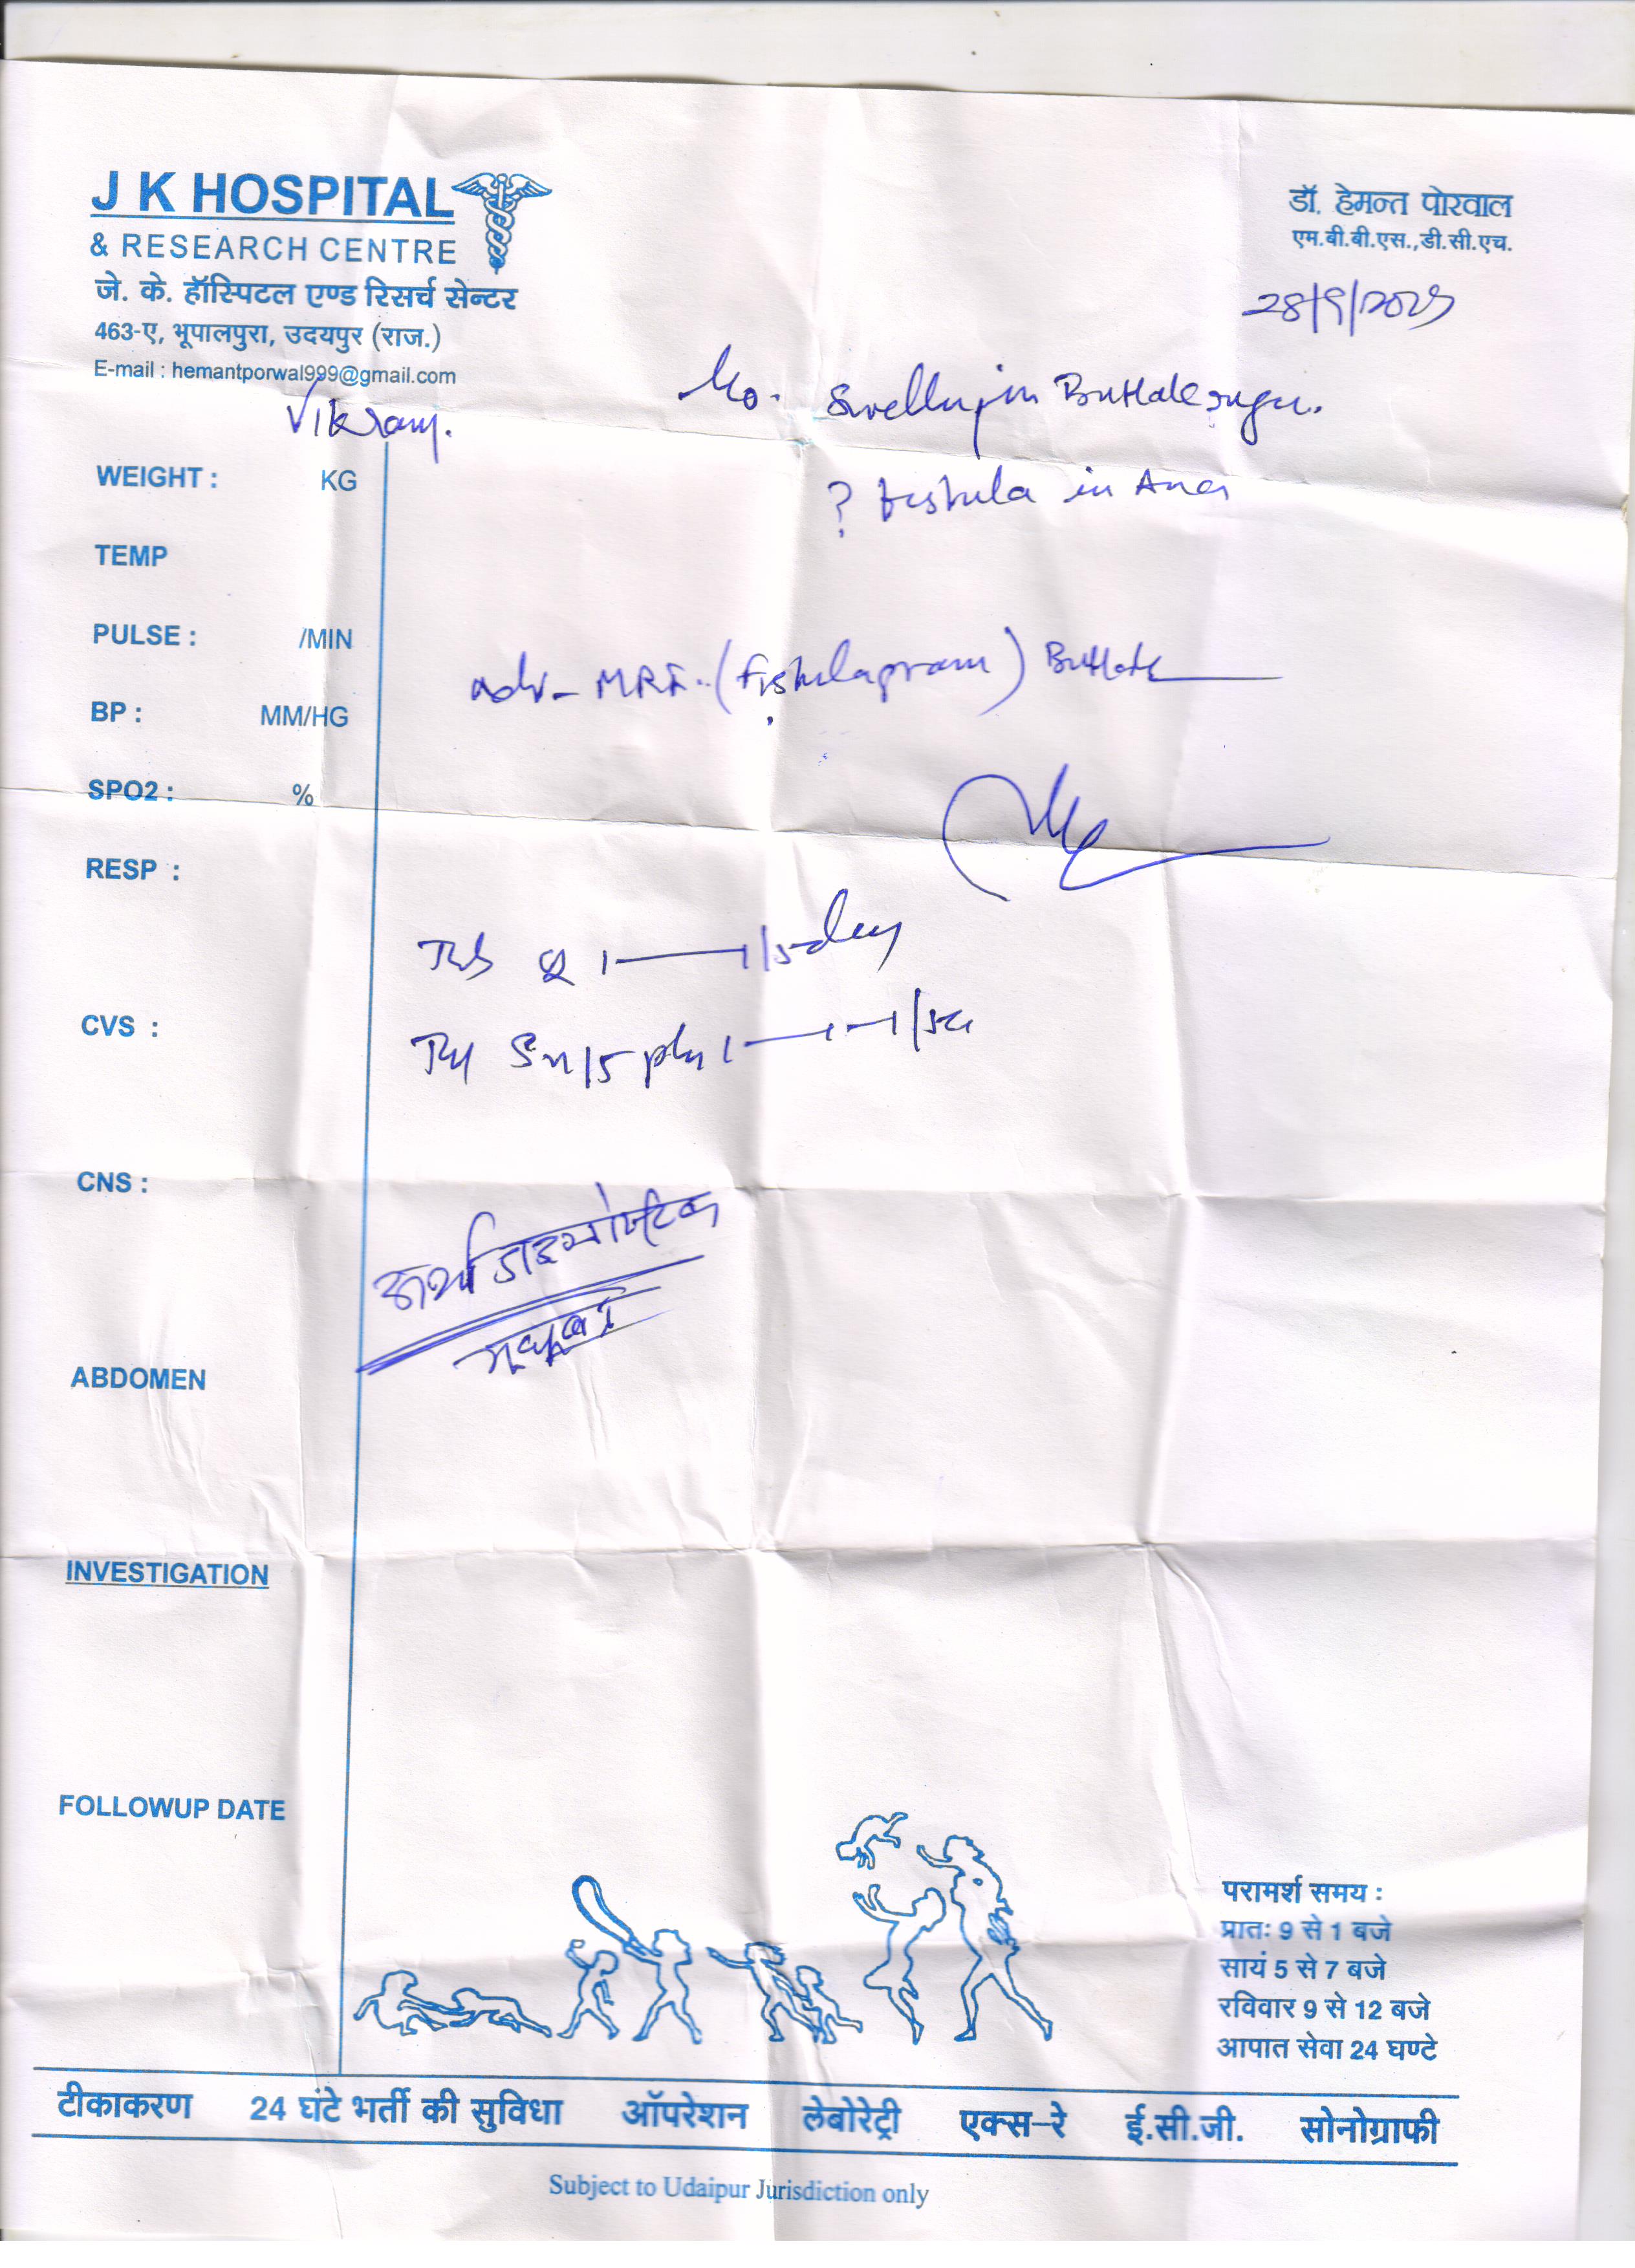 J K HOSPITAL
& RESEARCH CENTRE
जे. के. हॉस्पिटल एण्ड रिसर्च सेन्टर
463-ए, भूपालपुरा, उदयपुर (राज.)
E-mail : hemantporwal999@gmail.com
डॉ. हेमन्त पोरवाल
एम.बी.बी.एस.,डी.सी.एच.
28/9/2025
Vikram.
in Buttock
? fistula in Ano
WEIGHT : KG
TEMP
PULSE : /MIN
adv- MRI (fistulagram) Buttock
BP : MM/HG
SPO2 : %
RESP :
1 1/5 day
CVS :
CNS :
डाइग्नोस्टिक
ABDOMEN
INVESTIGATION
FOLLOWUP DATE
परामर्श समय :
प्रातः 9 से 1 बजे
सायं 5 से 7 बजे
रविवार 9 से 12 बजे
आपात सेवा 24 घण्टे
टीकाकरण 24 घंटे भर्ती की सुविधा ऑपरेशन लेबोरेट्री एक्स-रे ई.सी.जी. सोनोग्राफी
Subject to Udaipur Jurisdiction only